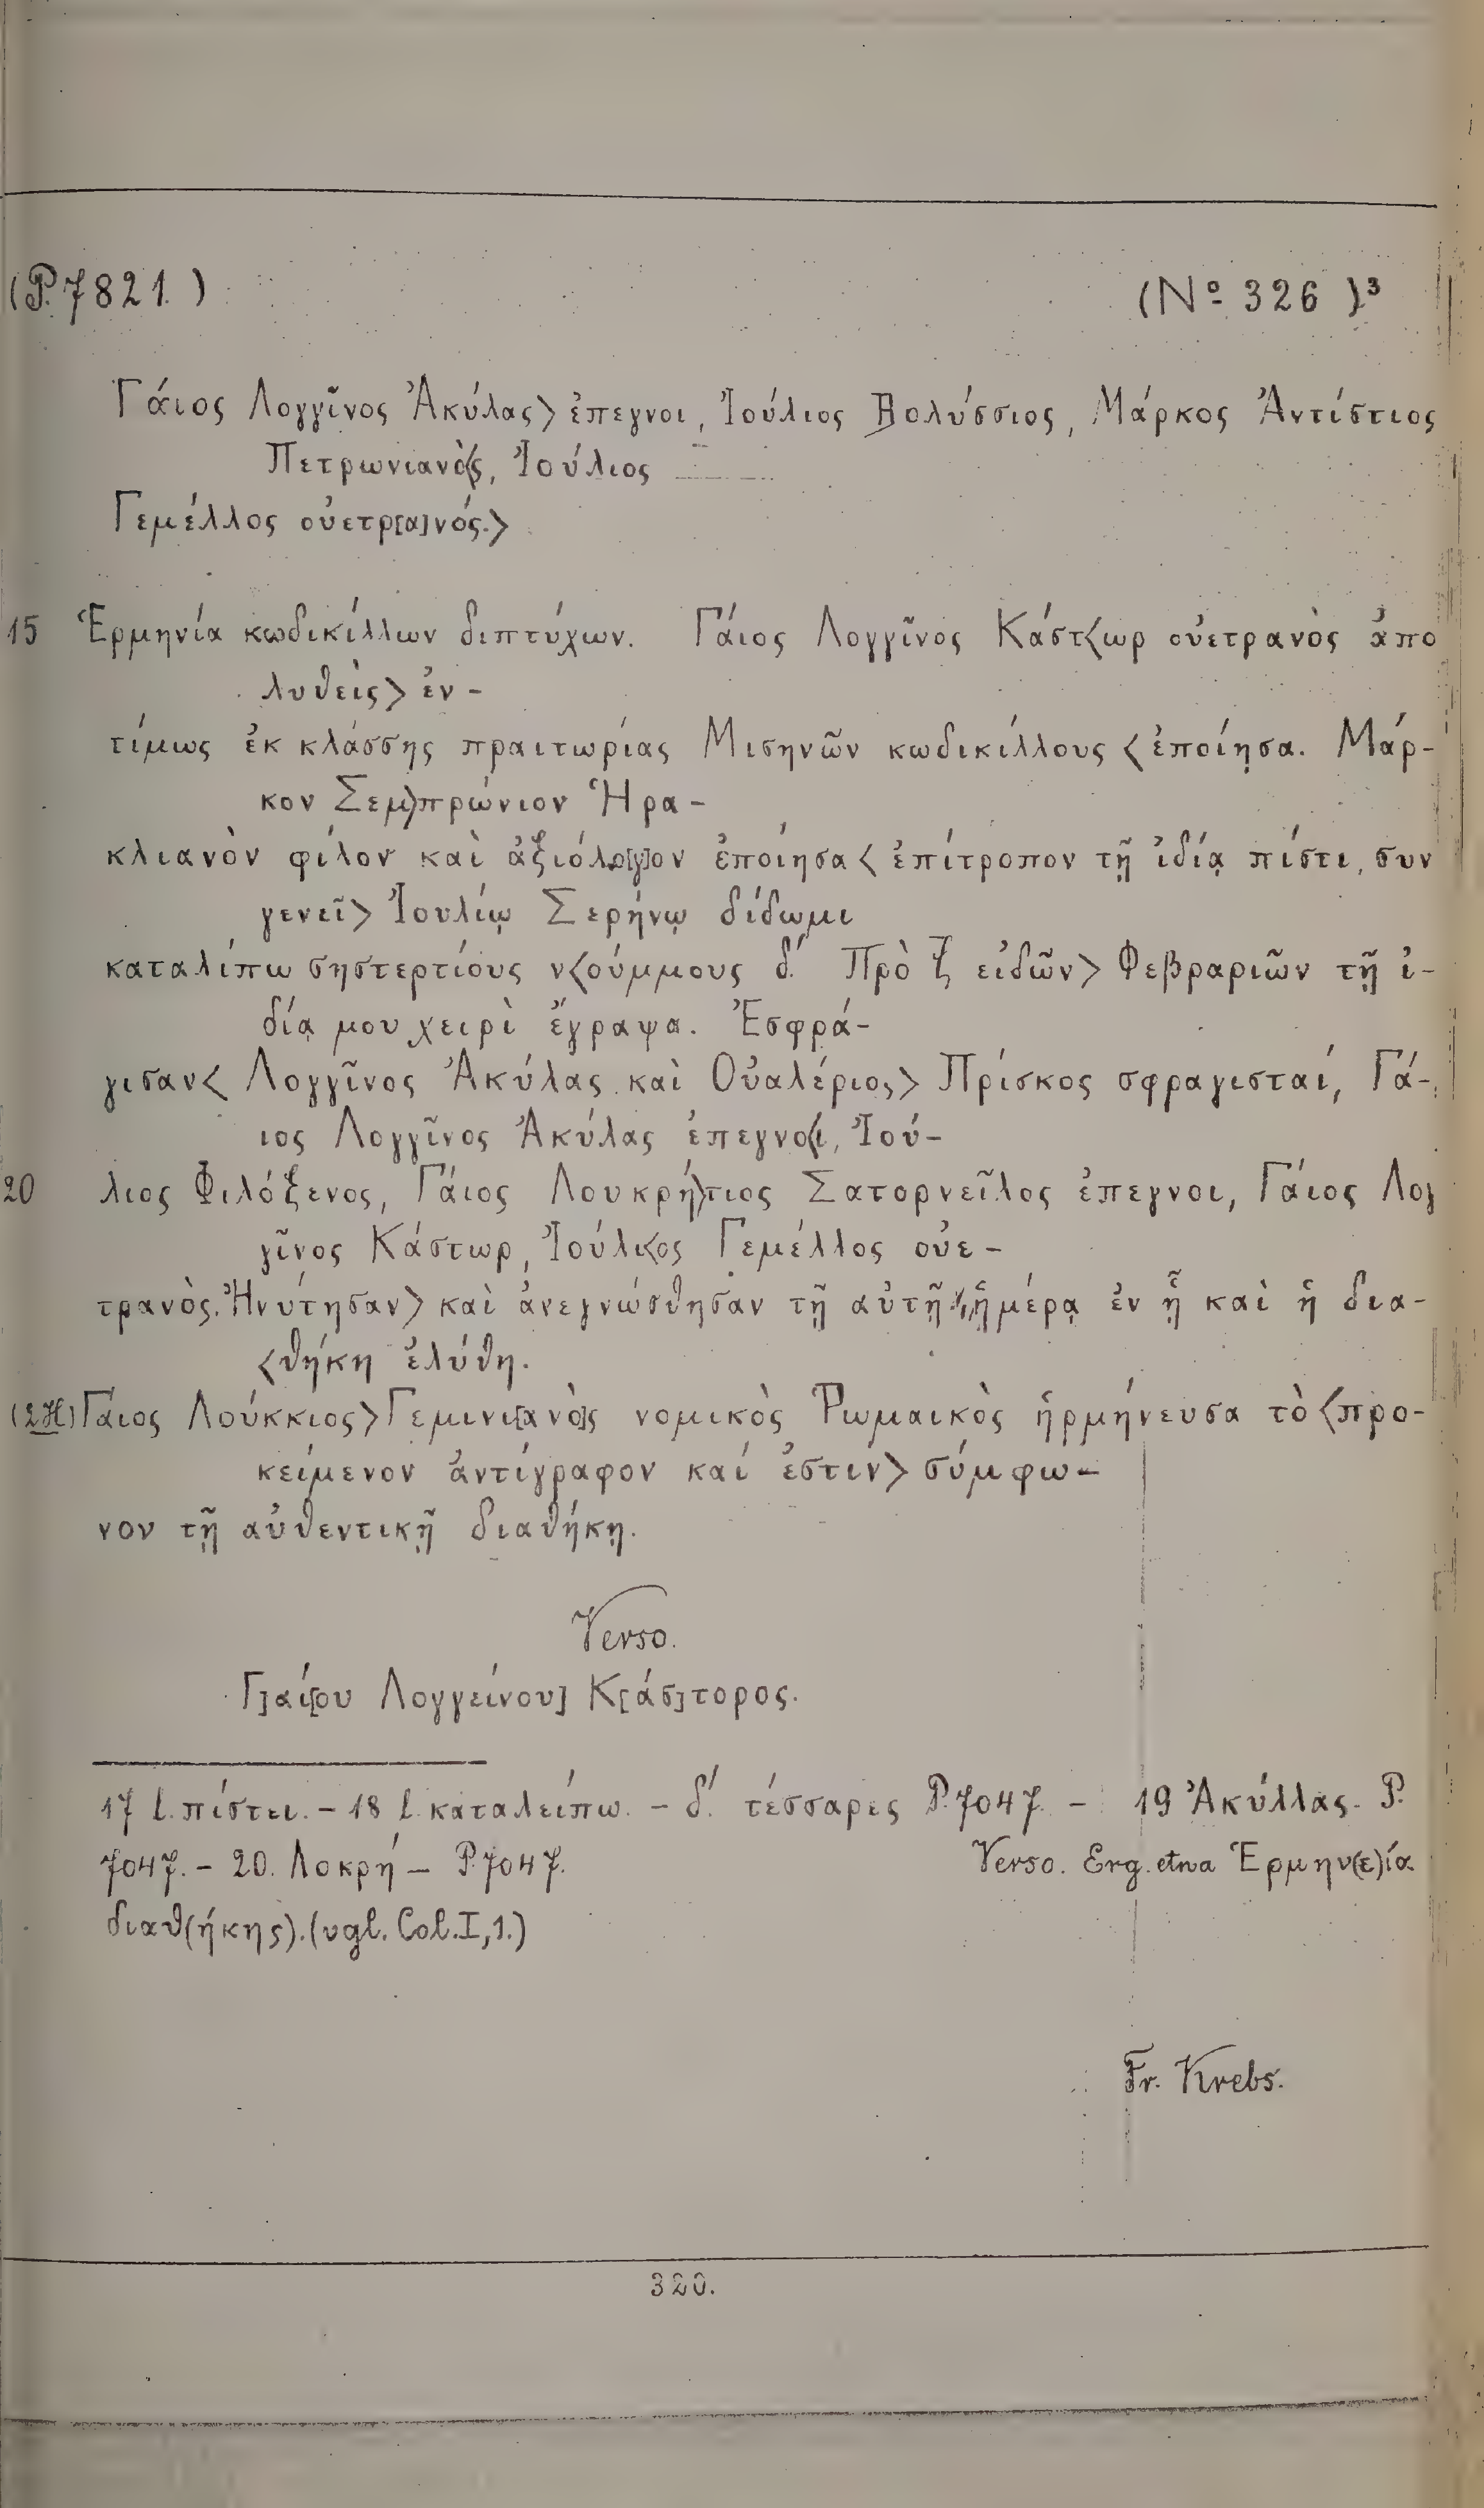 (P. 7821.) (Nº 326)³
Γάιος Λογγῖνος Ἀκύλας〉 ἐπεγνοι, Ἰούλιος Βολύσσιος, Μάρκος Ἀντίστιος
Πετρωνιανὸ〈ς, Ἰούλιος
Γεμέλλος οὐετρ[α]νός.〉
15 Ἑρμηνία κωδικίλλων διπτύχων. Γάιος Λογγῖνος Κάστ〈ωρ οὐετρανὸς ἀπο
λυθεὶς〉 ἐν-
τίμως ἐκ κλάσσης πραιτωρίας Μισηνῶν κωδικίλλους 〈ἐποίησα. Μάρ-
κον Σεμ〉πρώνιον Ἡρα-
κλιανὸν φίλον καὶ ἀξιόλο[γ]ον ἐποίησα 〈ἐπίτροπον τῇ ἰδίᾳ πίστι, συν
γενεῖ〉 Ἰουλίῳ Σερήνῳ δίδωμι
καταλίπω σηστερτίους ν〈ούμμους δ´. Πρὸ ζ εἰδῶν〉 Φεβραριῶν τῇ ἰ-
δίᾳ μου χειρὶ ἔγραψα. Ἐσφρά-
γισαν〈 Λογγῖνος Ἀκύλας καὶ Οὐαλέριος〉 Πρίσκος σφραγισταί, Γά-
ιος Λογγῖνος Ἀκύλας ἐπεγνο〈ι, Ἰού-
20 λιος Φιλόξενος, Γάιος Λουκρή〉τιος Σατορνεῖλος ἐπεγνοι, Γάιος Λογ
γῖνος Κάστωρ, Ἰούλι〈ος Γεμέλλος οὐε-
τρανὸς. Ἠνύτησαν〉 καὶ ἀνεγνώσθησαν τῇ αὐτῇ ἡμέρᾳ ἐν ᾗ καὶ ἡ δια-
〈θήκη ἐλύθη.
(2H) Γάιος Λούκκιος〉 Γεμινι[ανὸ]ς νομικὸς Ῥωμαικὸς ἡρμήνευσα τὸ 〈προ-
κείμενον ἀντίγραφον καί ἐστιν〉 σύμφω-
νον τῇ αὐθεντικῇ διαθήκῃ.
Verso.
Γ]αί[ου Λογγείνου] Κ[άσ]τορος.
17 l. πίστει. – 18 l. καταλείπω. – δ´. τέσσαρες P. 7047. – 19 Ἀκύλλας. P.
7047. – 20. Λοκρή – P. 7047. Verso. Erg. etwa Ἑρμην(ε)ία
διαθ(ήκης). (vgl. Col. I, 1.)
Fr. Krebs.
320.